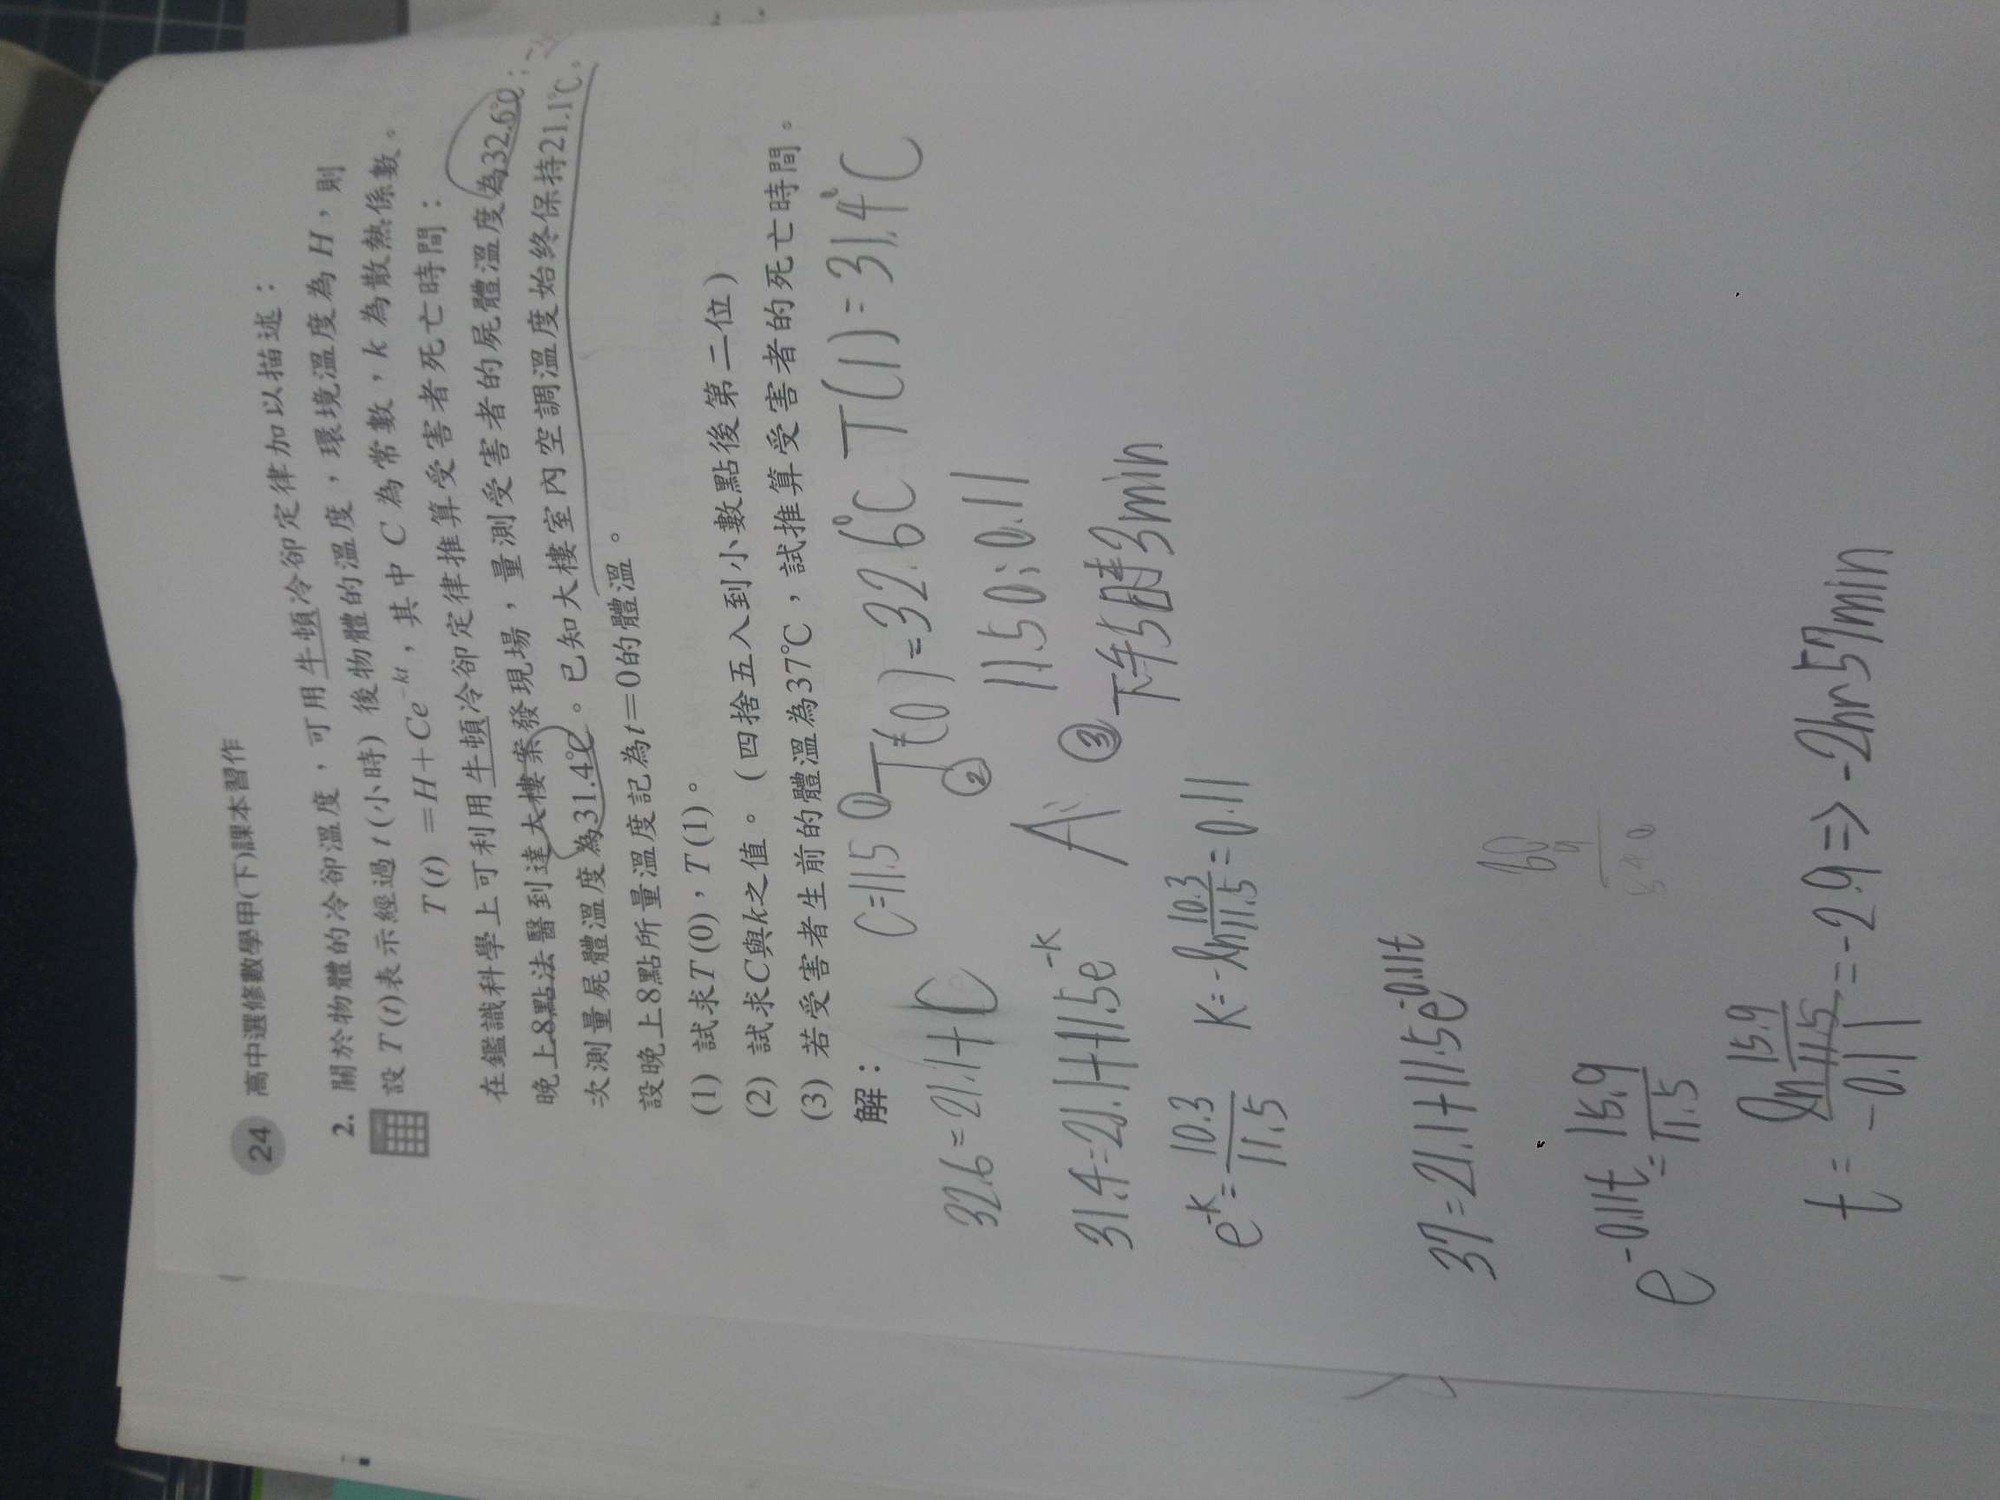 24 高中選修數學甲(下)課本習作
2. 關於物體的冷卻溫度，可用牛頓冷卻定律加以描述：
設T(t)表示經過t(小時)後物體的溫度，環境溫度為H，則
T(t)=H+Ce^{-kt}，其中C為常數，k為散熱係數。
在鑑識科學上可利用牛頓冷卻定律推算受害者死亡時間：
晚上8點法醫到達大樓案發現場，量測受害者的屍體溫度為32.6℃；
次測量屍體溫度為31.4℃。已知大樓室內空調溫度始終保持21.1℃。
設晚上8點所量溫度記為t=0的體溫。
(1) 試求T(0)，T(1)。
(2) 試求C與k之值。(四捨五入到小數點後第二位)
(3) 若受害者生前的體溫為37℃，試推算受害者的死亡時間。
解：
C=11.5 ① T(0)=32.6°C T(1)=31.4°C
32.6=21.1+C
② 11.50；0.11
31.4=21.1+11.5e^{-K}
A：
③ 下午5時3min
e^{-K}=10.3/11.5
K=-ln 10.3/11.5=0.11
37=21.1+11.5e^{-0.11t}
60
9
540
e^{-0.11t}=15.9/11.5
t=ln 15.9/11.5/-0.11=-2.9⇒-2hr57min